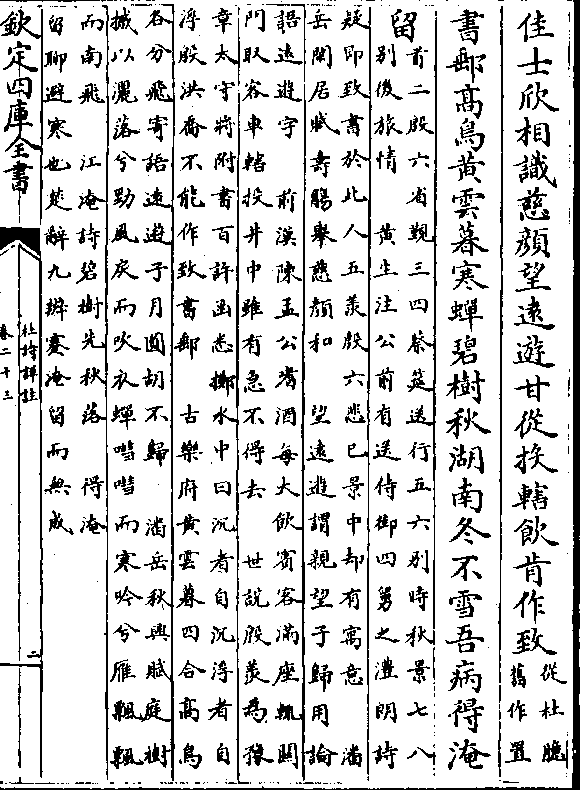 佳士欣相識慈顔望遠遊甘從投轄飲肯作致從杜臆舊作置
書郵高鳥黄雲暮寒蟬碧樹秋湖南冬不雪吾病得淹
留首二殷六省觀三四蔡筵送行五六别時秋景七八
别後旅情　黄生注公前有送侍御四舅之澧朗詩
疑即致書於此人五羨殷六悲已景中却有寓意　潘
岳閒居賦壽觴舉慈顔和　望遠遊謂親望子歸用論
語遠遊字　前漢陳孟公嗜酒每大飲賓客滿座輒闗
門取客車轄投井中雖有急不得去　世説殷羨為豫
章太守將附書百許函悉擲水中曰沉者自沉浮者自
浮殷洪喬不能作致書郵　古樂府黄雲暮四合高鳥
各分飛寄語遠遊子月圓胡不歸　潘岳秋興賦庭樹
摵以灑落兮勁風戾而吹衣蟬嘒嘒而寒吟兮雁飄飄
而南飛　江淹詩碧樹先秋落　得淹
留聊避寒也楚辭九辯蹇淹留而無成
欽定四庫全書
杜詩詳註
卷二十三
二